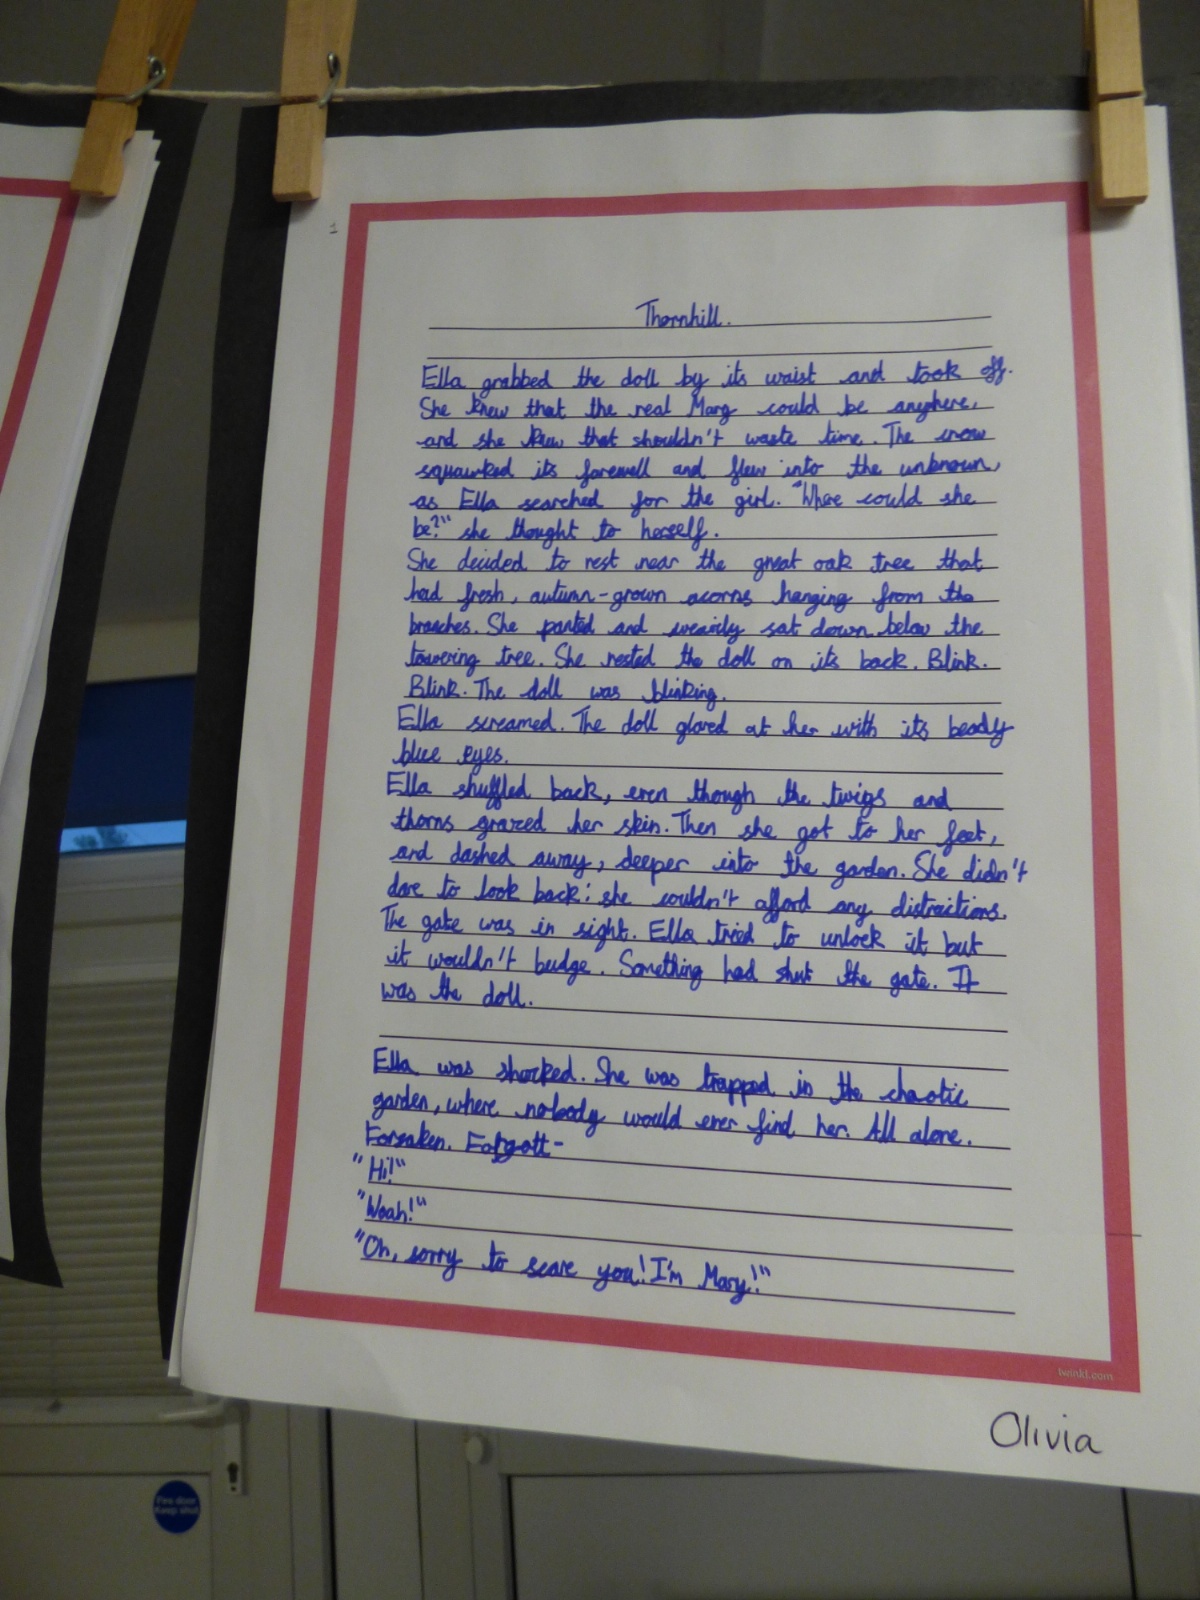 Thornhill.
Ella grabbed the doll by its waist and took off.
She knew that the real Mary could be anyhere,
and she knew that shouldn't waste time. The crow
squawked its farewell and flew into the unknown,
as Ella searched for the girl. "Where could she
be?" she thought to herself.
She decided to rest near the great oak tree that
had fresh, autumn-grown acorns hanging from the
branches. She panted and wearily sat down below the
towering tree. She rested the doll on its back. Blink.
Blink. The doll was blinking.
Ella screamed. The doll glared at her with its beady
blue eyes.
Ella shuffled back, even though the twigs and
thorns grazed her skin. Then she got to her feet,
and dashed away, deeper into the garden. She didn't
dare to look back: she couldn't afford any distractions.
The gate was in sight. Ella tried to unlock it but
it wouldn't budge. Something had shut the gate. It
was the doll.
Ella was shocked. She was trapped in the chaotic
garden, where nobody would ever find her. All alone.
Forsaken. Forgott-
"Hi!"
"Woah!"
"Oh, sorry to scare you! I'm Mary!"
twinkl.com
Olivia
Fire door
Keep shut